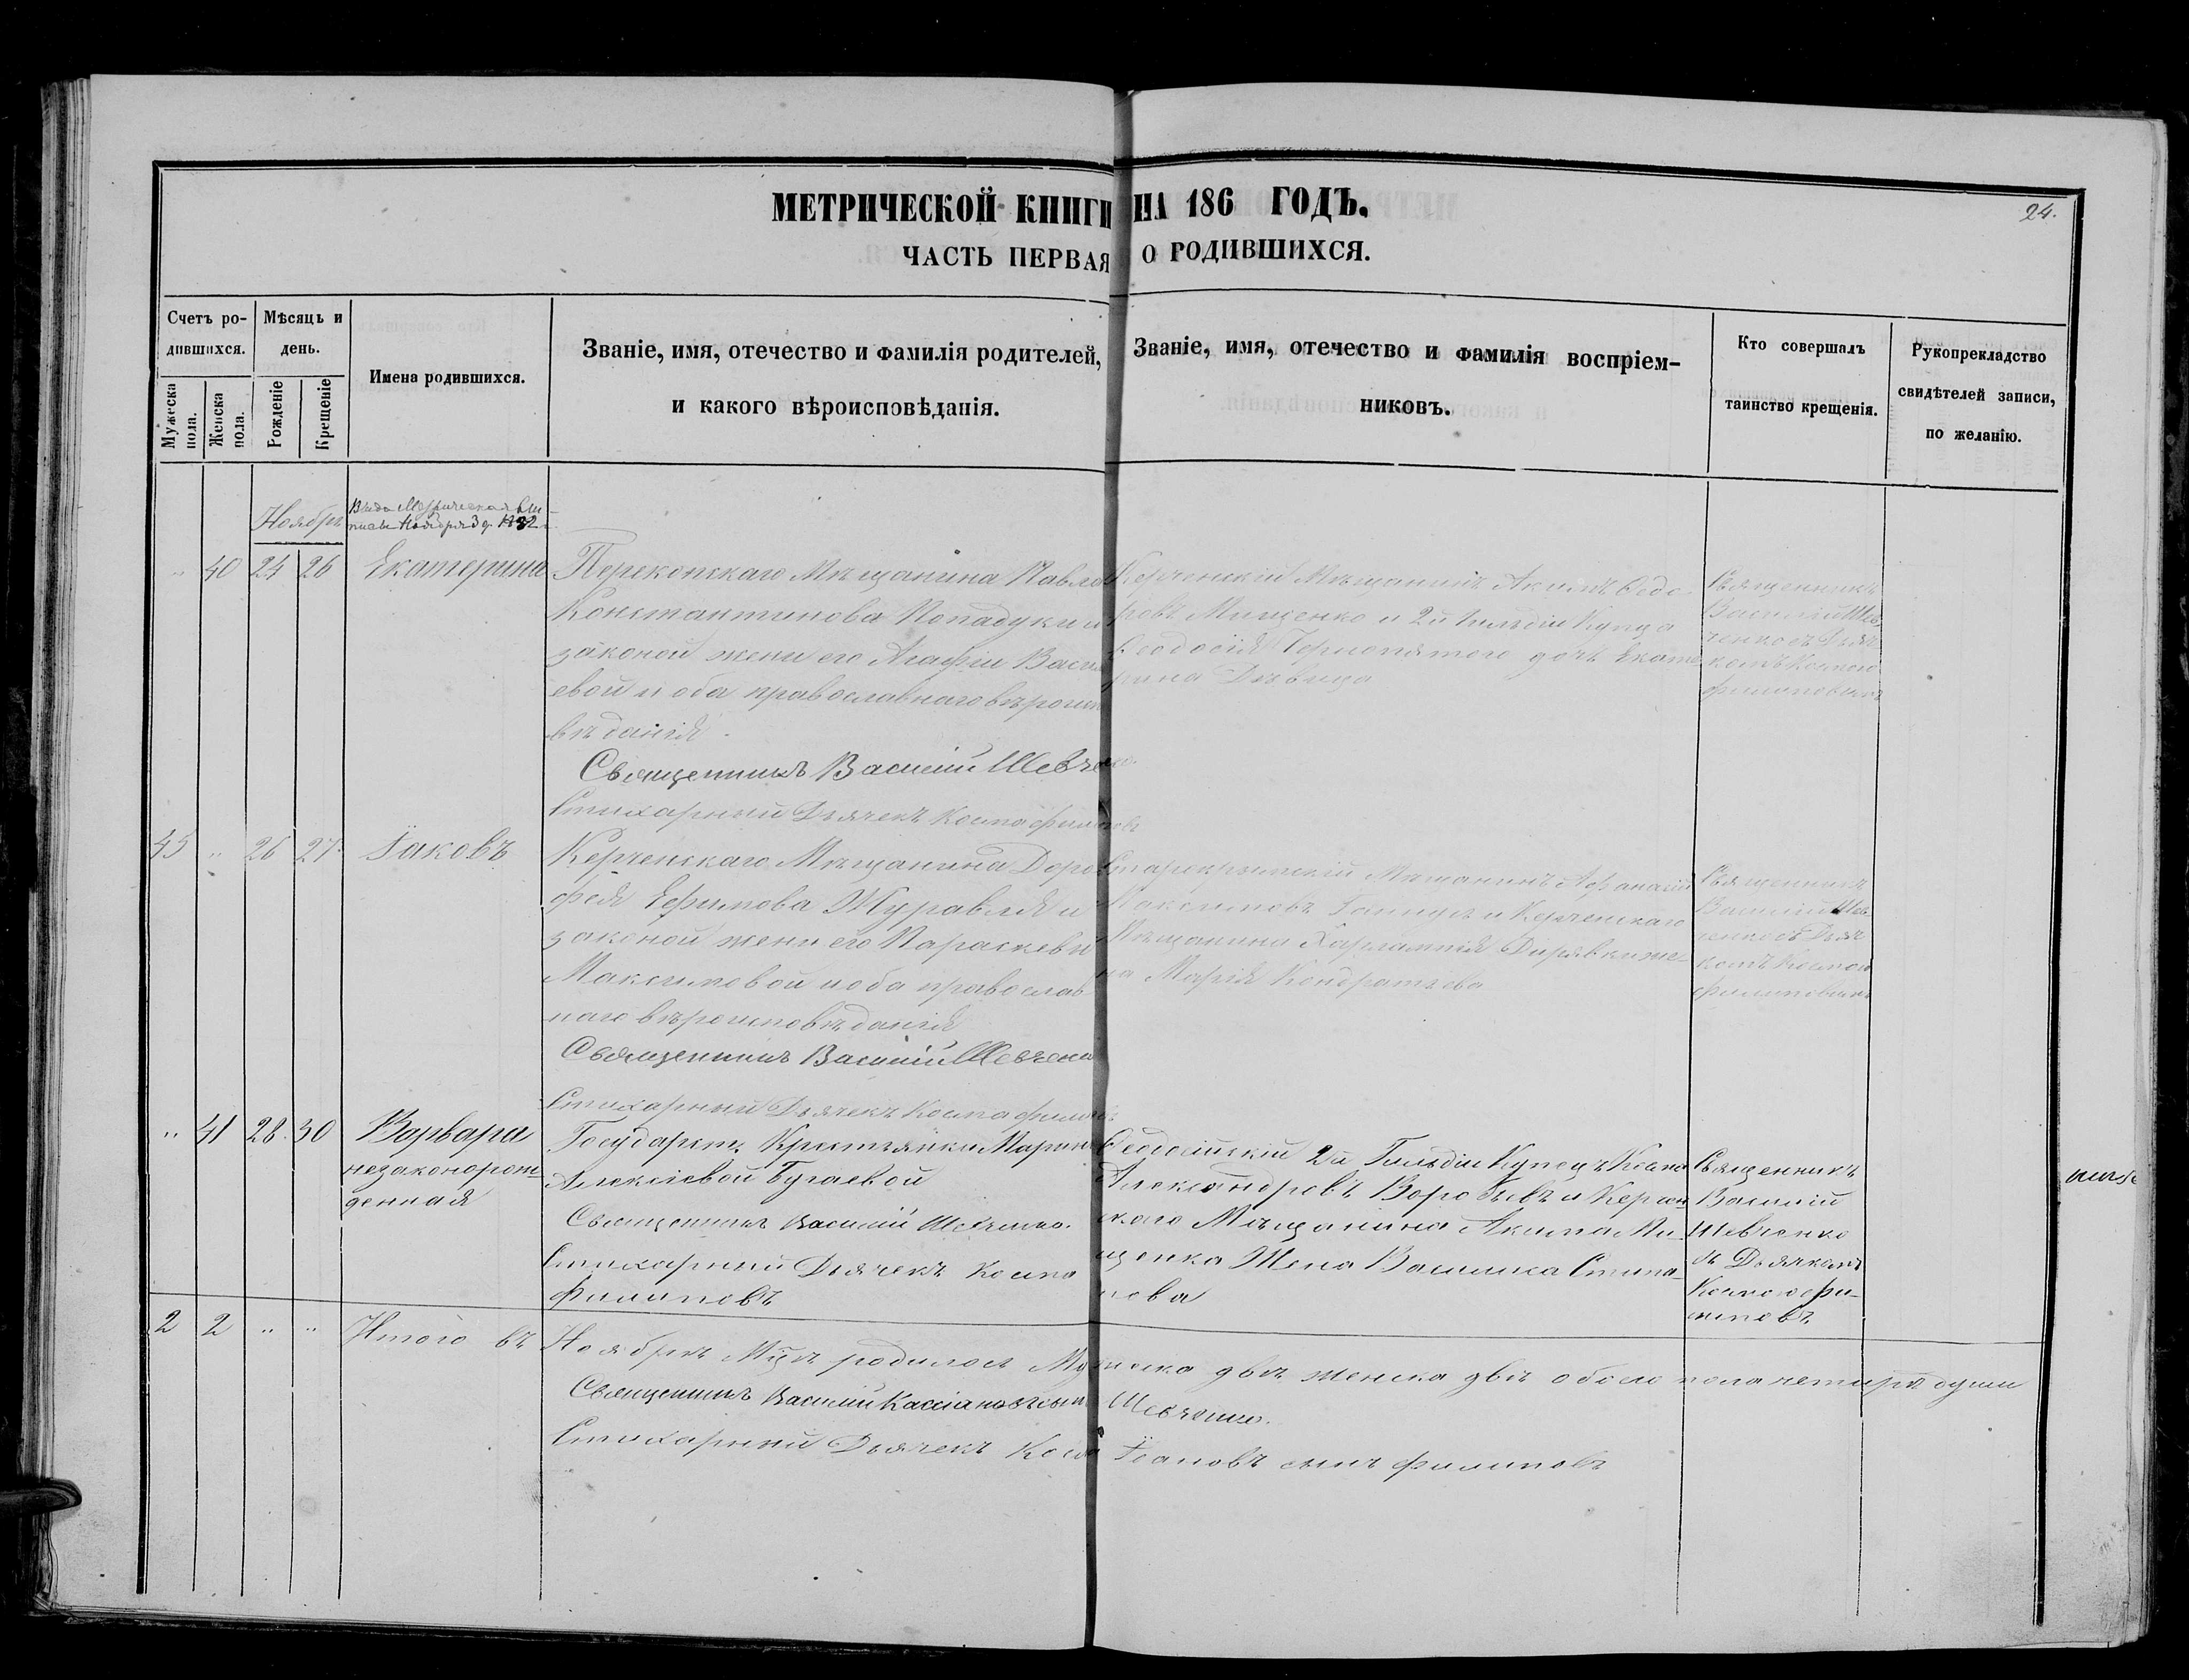 МЕТРИЧЕСКОЙ КНИГИ НА 186 ГОДЪ.
24.
ЧАСТЬ ПЕРВАЯ О РОДИВШИХСЯ.
Счетъ ро-
дившихся.
Мужеска пола.
Женска пола.
Мѣсяцъ и
день.
Рожденіе
Крещеніе
Имена родившихся.
Званіе, имя, отечество и фамилія родителей,
и какого вѣроисповѣданія.
Званіе, имя, отечество и фамилія воспріем-
никовъ.
Кто совершалъ
таинство крещенія.
Рукопрекладство
свидѣтелей записи,
по желанію.
Ноябрь
40 24 26 Екатерина
Перекопскаго Мѣщанина Павла
Константинова Попадуки и
законой жены его Агафіи Васи
евой и оба православнаго вѣроис
вѣданія
Священникъ Василій Шевчен
Стихарный Дьячекъ Косма Филиповъ
Керченскій Мѣщанинъ Акимъ Ѳедо
ровъ Мищенко и 2й Гильдіи Купца
Ѳеодосія дочь Екате
рина Дѣвица
Священникъ
Василій Шев
ченко съ Дьяч
комъ Космою
Филиповымъ
45 " 26 27 Іаковъ
Керченскаго Мѣщанина Доро
фея Ефимова Журавля и
законой жены его Параскевы
Максимовой и оба православ
наго вѣроисповѣданія
Священникъ Василій Шевченк
Стихарный Дьячекъ Косма Филипов
Старокрымскій Мѣщанинъ Афанасій
Максимовъ и Керченскаго
Мѣщанина Харлампія же
на Марія Кондратьева
Священникъ
Василій Шев
ченко съ Дьяч
комъ Космою
Филиповымъ
" 41 28 30 Варвара
незаконорож
денная
Государст. Крестьянки Марины
Алексіевой Бугаевой
Священникъ Василій Шевченко.
Стихарный Дьячекъ Косма
Филиповъ
Ѳеодосійскій 2й Гильдіи Купецъ
Александровъ Воробьевъ и Керчен
скаго Мѣщанина Акима Ми-
щенка Жена Василиса Степа-
нова
Священникъ
Василій
Шевченко
съ Дьячкомъ
Космою Фи-
липовъ
2 2 " " Итого въ Ноябрѣ Мцѣ родилось Мужеска двѣ женска двѣ обоего пола четыре души
Священникъ Василій Кассіановъ сынъ Шевченко.
Стихарный Дьячекъ Косма Іоановъ сынъ Филиповъ